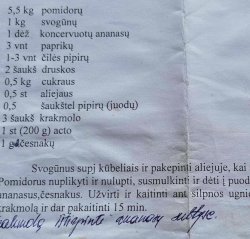 5,5 kg pomidorų
1 kg svogūnų
1 dėž koncervuotų ananasų
3 vnt paprikų
1-3 vnt čilės pipirų
2 šaukš druskos
0,5 kg cukraus
0,5 st aliejaus
0,5 šaukštel pipirų (juodų)
3 šaukš krakmolo
1 st (200 g) acto
1 g česnakų
Svogūnus supj kūbeliais ir pakepinti aliejuje, kai
Pomidorus nuplikyti ir nulupti, susmulkinti ir dėti į puod
ananasus,česnakus. Užvirti ir kaitinti ant silpnos ugnies
krakmola ir dar pakaitinti 15 min.
ananasų